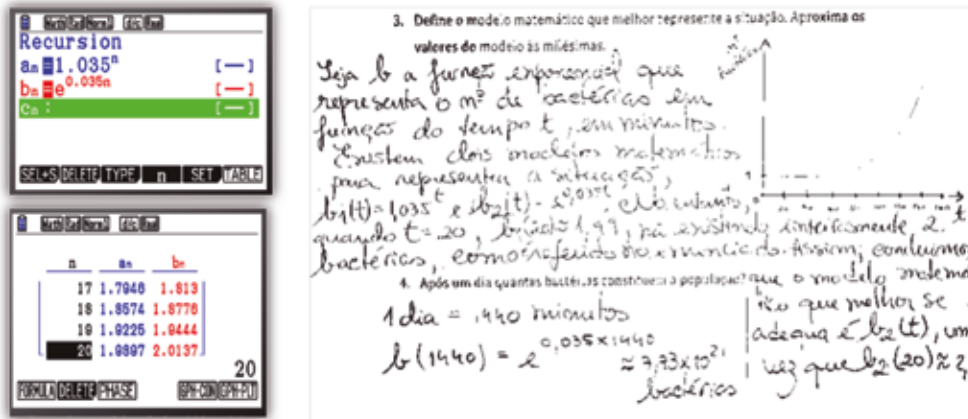 Math Rad Norm1 d/c Real
Recursion
an=1.035^n [—]
bn=e^0.035n [—]
cn: [—]
SEL+S DELETE TYPE n SET TABLE
Math Rad Norm1 d/c Real
n an bn
17 1.7946 1.813
18 1.8574 1.8776
19 1.9225 1.9444
20 1.9897 2.0137
20
FORMULA DELETE PHASE GPH-CON GPH-PLT
3. Define o modelo matemático que melhor represente a situação. Aproxima os
valores do modelo às milésimas.
Seja b a função exponencial que
representa o nº de bactérias em
função do tempo t, em minutos.
Existem dois modelos matemáticos
para representar a situação,
b1(t)=1,035^t e b2(t)= e^0,035t. No entanto,
quando t=20, 1,99, não existindo inteiramente 2
bactérias, como referido no enunciado. Assim, concluimos
que o modelo matemá
tico que melhor se
adequa é b2(t), uma
vez que b2(20)≈2,
1
t
4. Após um dia quantas bactérias constituem a população?
1 dia = 1440 minutos
b(1440) = e^0,035×1440 ≈ 7,73×10^21
bactérias